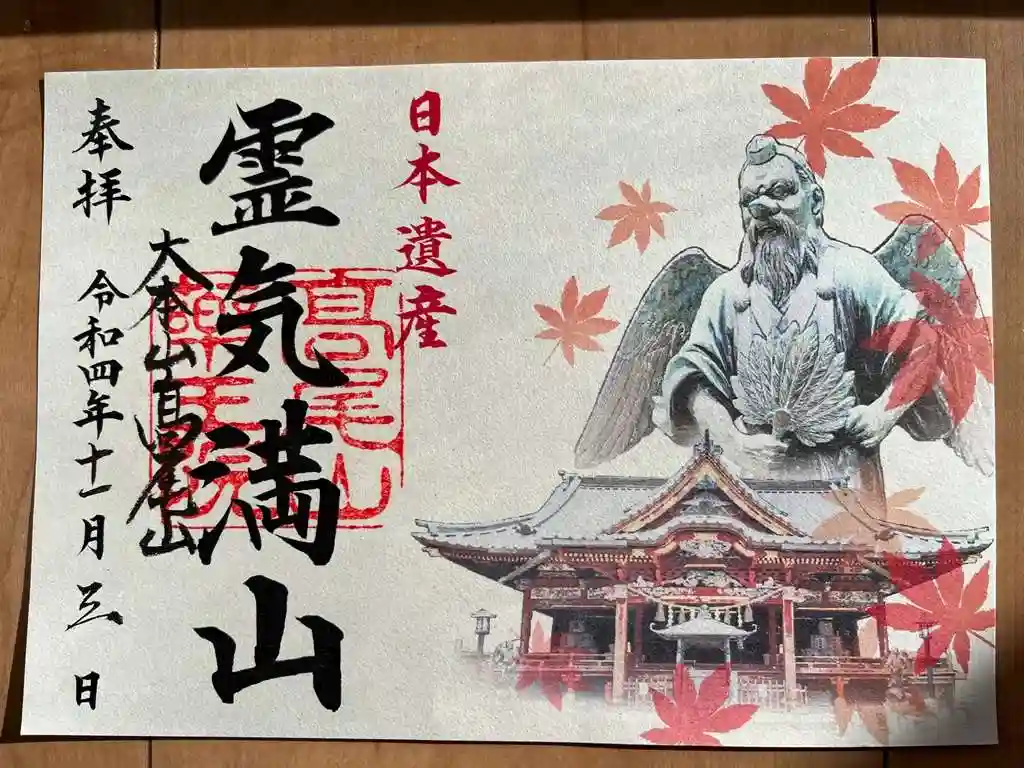 日本遺産
霊気満山
高尾山
薬王院
大本山高尾山
奉拝
令和四年十一月三日